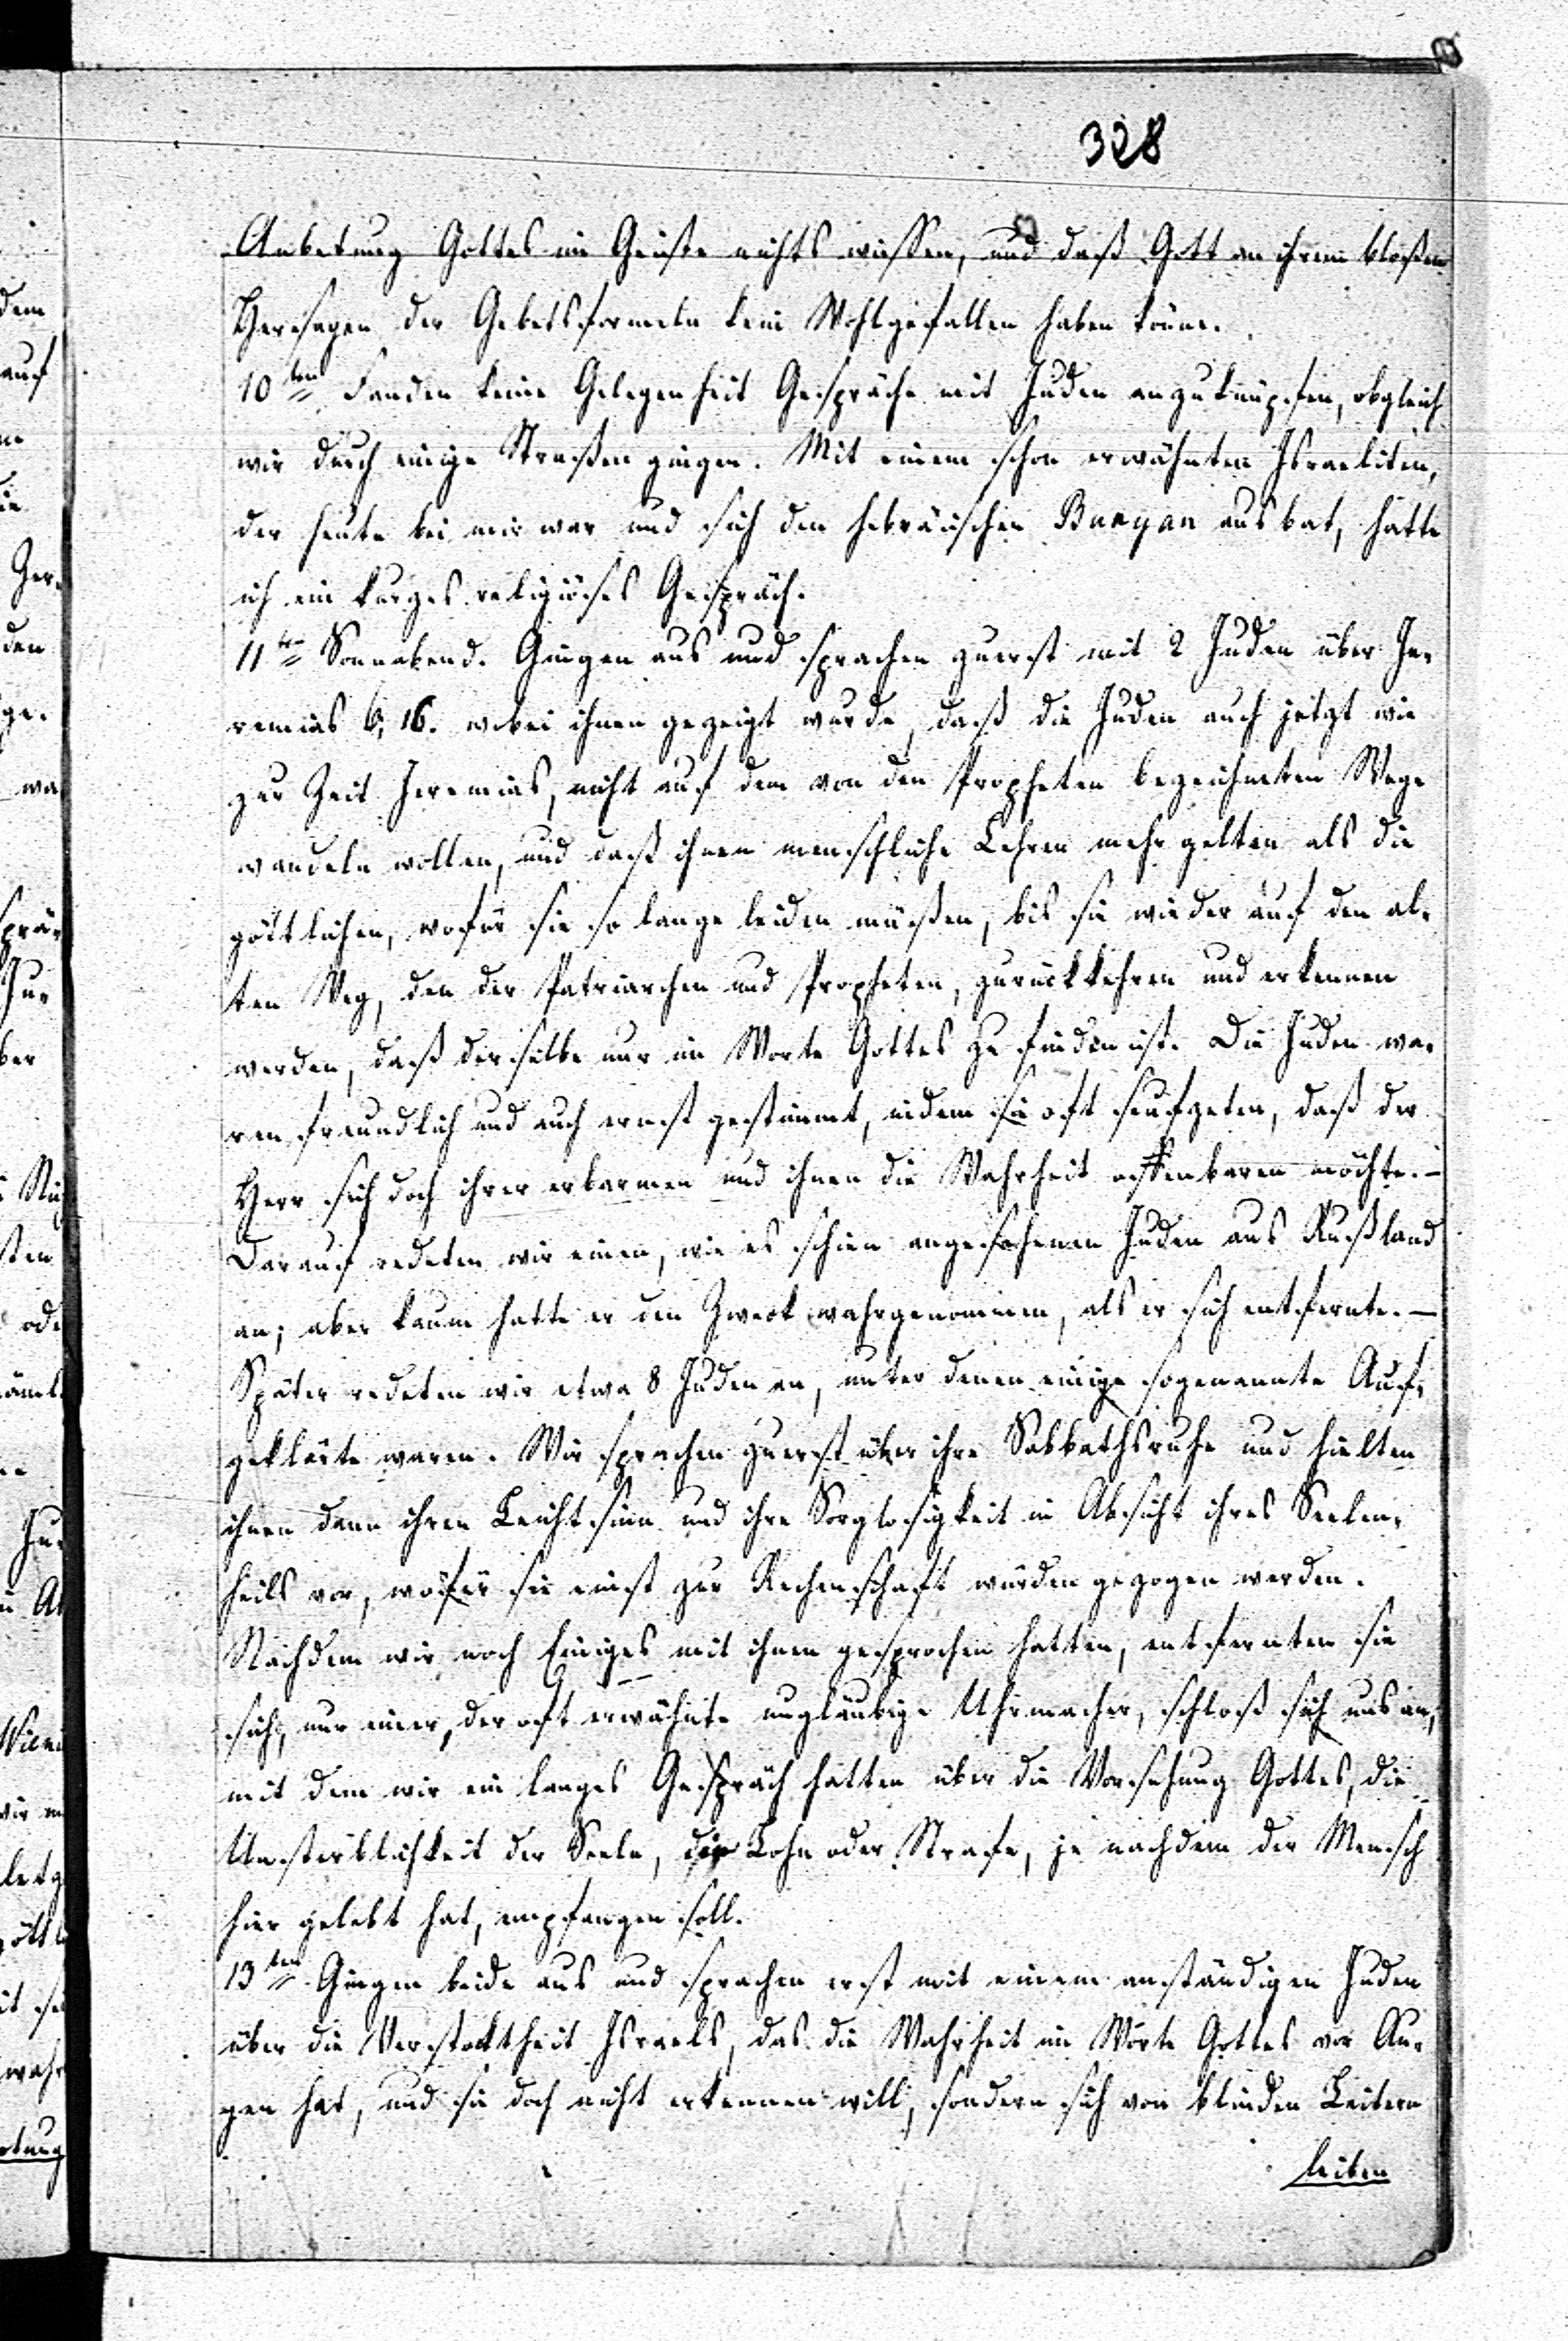 328
Anbetung Gottes im Geiste nichts wissen, und daß Gott an ihrem bloßen
Hersagen der Gebetsformeln kein Wohlgefallen haben könne.
10ten Fanden keine Gelegenheit Gespräche mit Juden anzuknüpfen, obgleich
wir durch einige Straßen gingen. Mit einem schon erwähnten Israeliten,
der heute bei mir war und sich den hebräischen Bunyan ausbat, hatte
ich ein kurzes religiöses Gespräch.
11ten Sonnabend. Gingen aus und sprachen zuerst mit 2 Juden über Je-
remias 6, 16. wobei ihnen gezeigt wurde, daß die Juden auch jetzt wie
zur Zeit Jeremias, nicht auf dem von den Propheten bezeichneten Wege
wandeln wollen, und daß ihnen menschliche Lehren mehr gelten als die
göttlichen, wofür sie so lange leiden müßen, bis sie wieder auf den al-
ten Weg, den der Patriarchen und Propheten, zurückkehren und erkennen
werden, daß derselbe nur im Worte Gottes zu finden ist. Die Juden wa-
ren freundlich und auch ernst gestimmt, indem sie oft seufzeten, daß der
Herr sich doch ihrer erbarmen und ihnen die Wahrheit offenbaren möchte. –
Darauf redeten wir einen, wie es schien angesehenen Juden aus Rußland
an; aber kaum hatte er den Zweck wahrgenommen, als er sich entfernte. –
Später redeten wir etwa 8 Juden an, unter denen einige sogenannte Auf-
geklärte waren. Wir sprachen zuerst über ihre Sabbathsruhe und hielten
ihnen dann ihren Leichtsinn und ihre Sorglosigkeit in Absicht ihres Seelen-
heils vor, wofür sie einst zur Rechenschaft würden gezogen werden.
Nachdem wir noch Einiges mit ihnen gesprochen hatten, entfernten sie
sich, nur einer, der oft erwähnte ungläubige Uhrmacher, schloß sich uns an,
mit dem wir ein langes Gespräch hatten über die Vorsehung Gottes, die
Unsterblichkeit der Seele, die Lohn oder Strafe, je nachdem der Mensch
hier gelebt hat, empfangen soll.
13ten Gingen beide aus und sprachen erst mit einem anständigen Juden
über die Verstocktheit Israels, das die Wahrheit im Worte Gottes vor Au-
gen hat, und sie doch nicht erkennen will, sondern sich von blinden Leitern
leiten